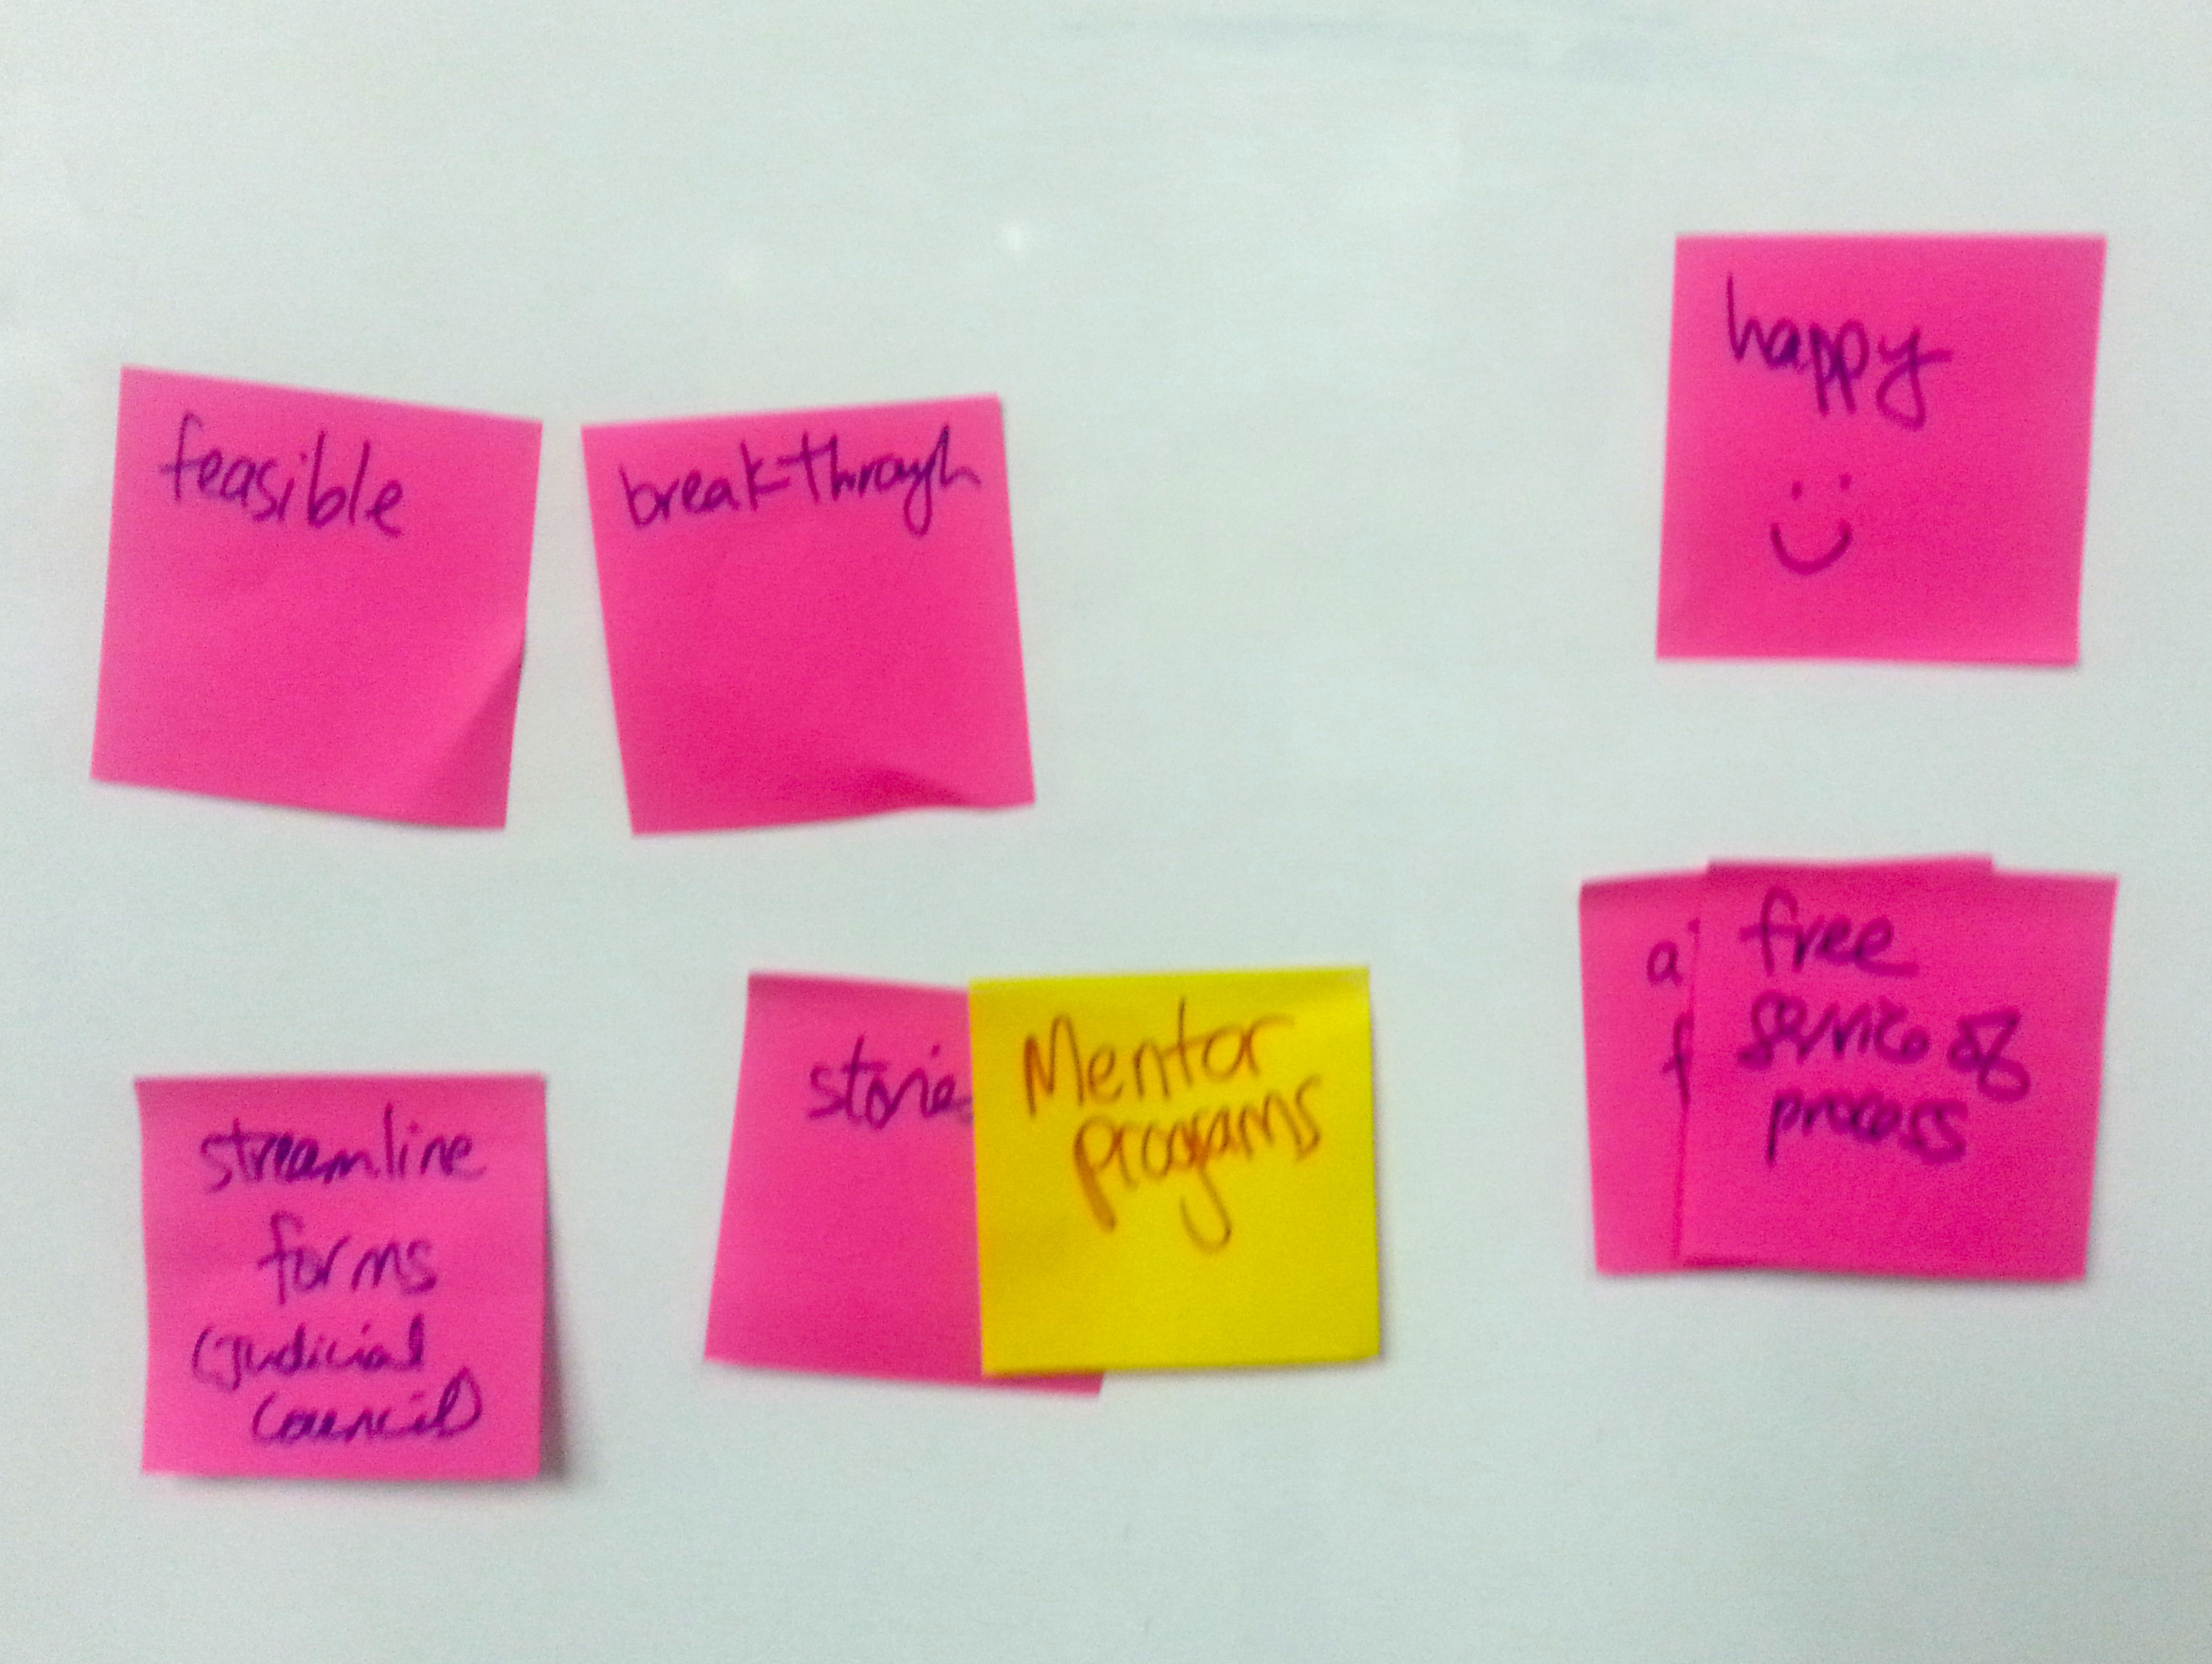 feasible
break-through
happy
streamline
forms
(Judicial
Council)
storie
Mentor
programs
a
f
free
service of
process